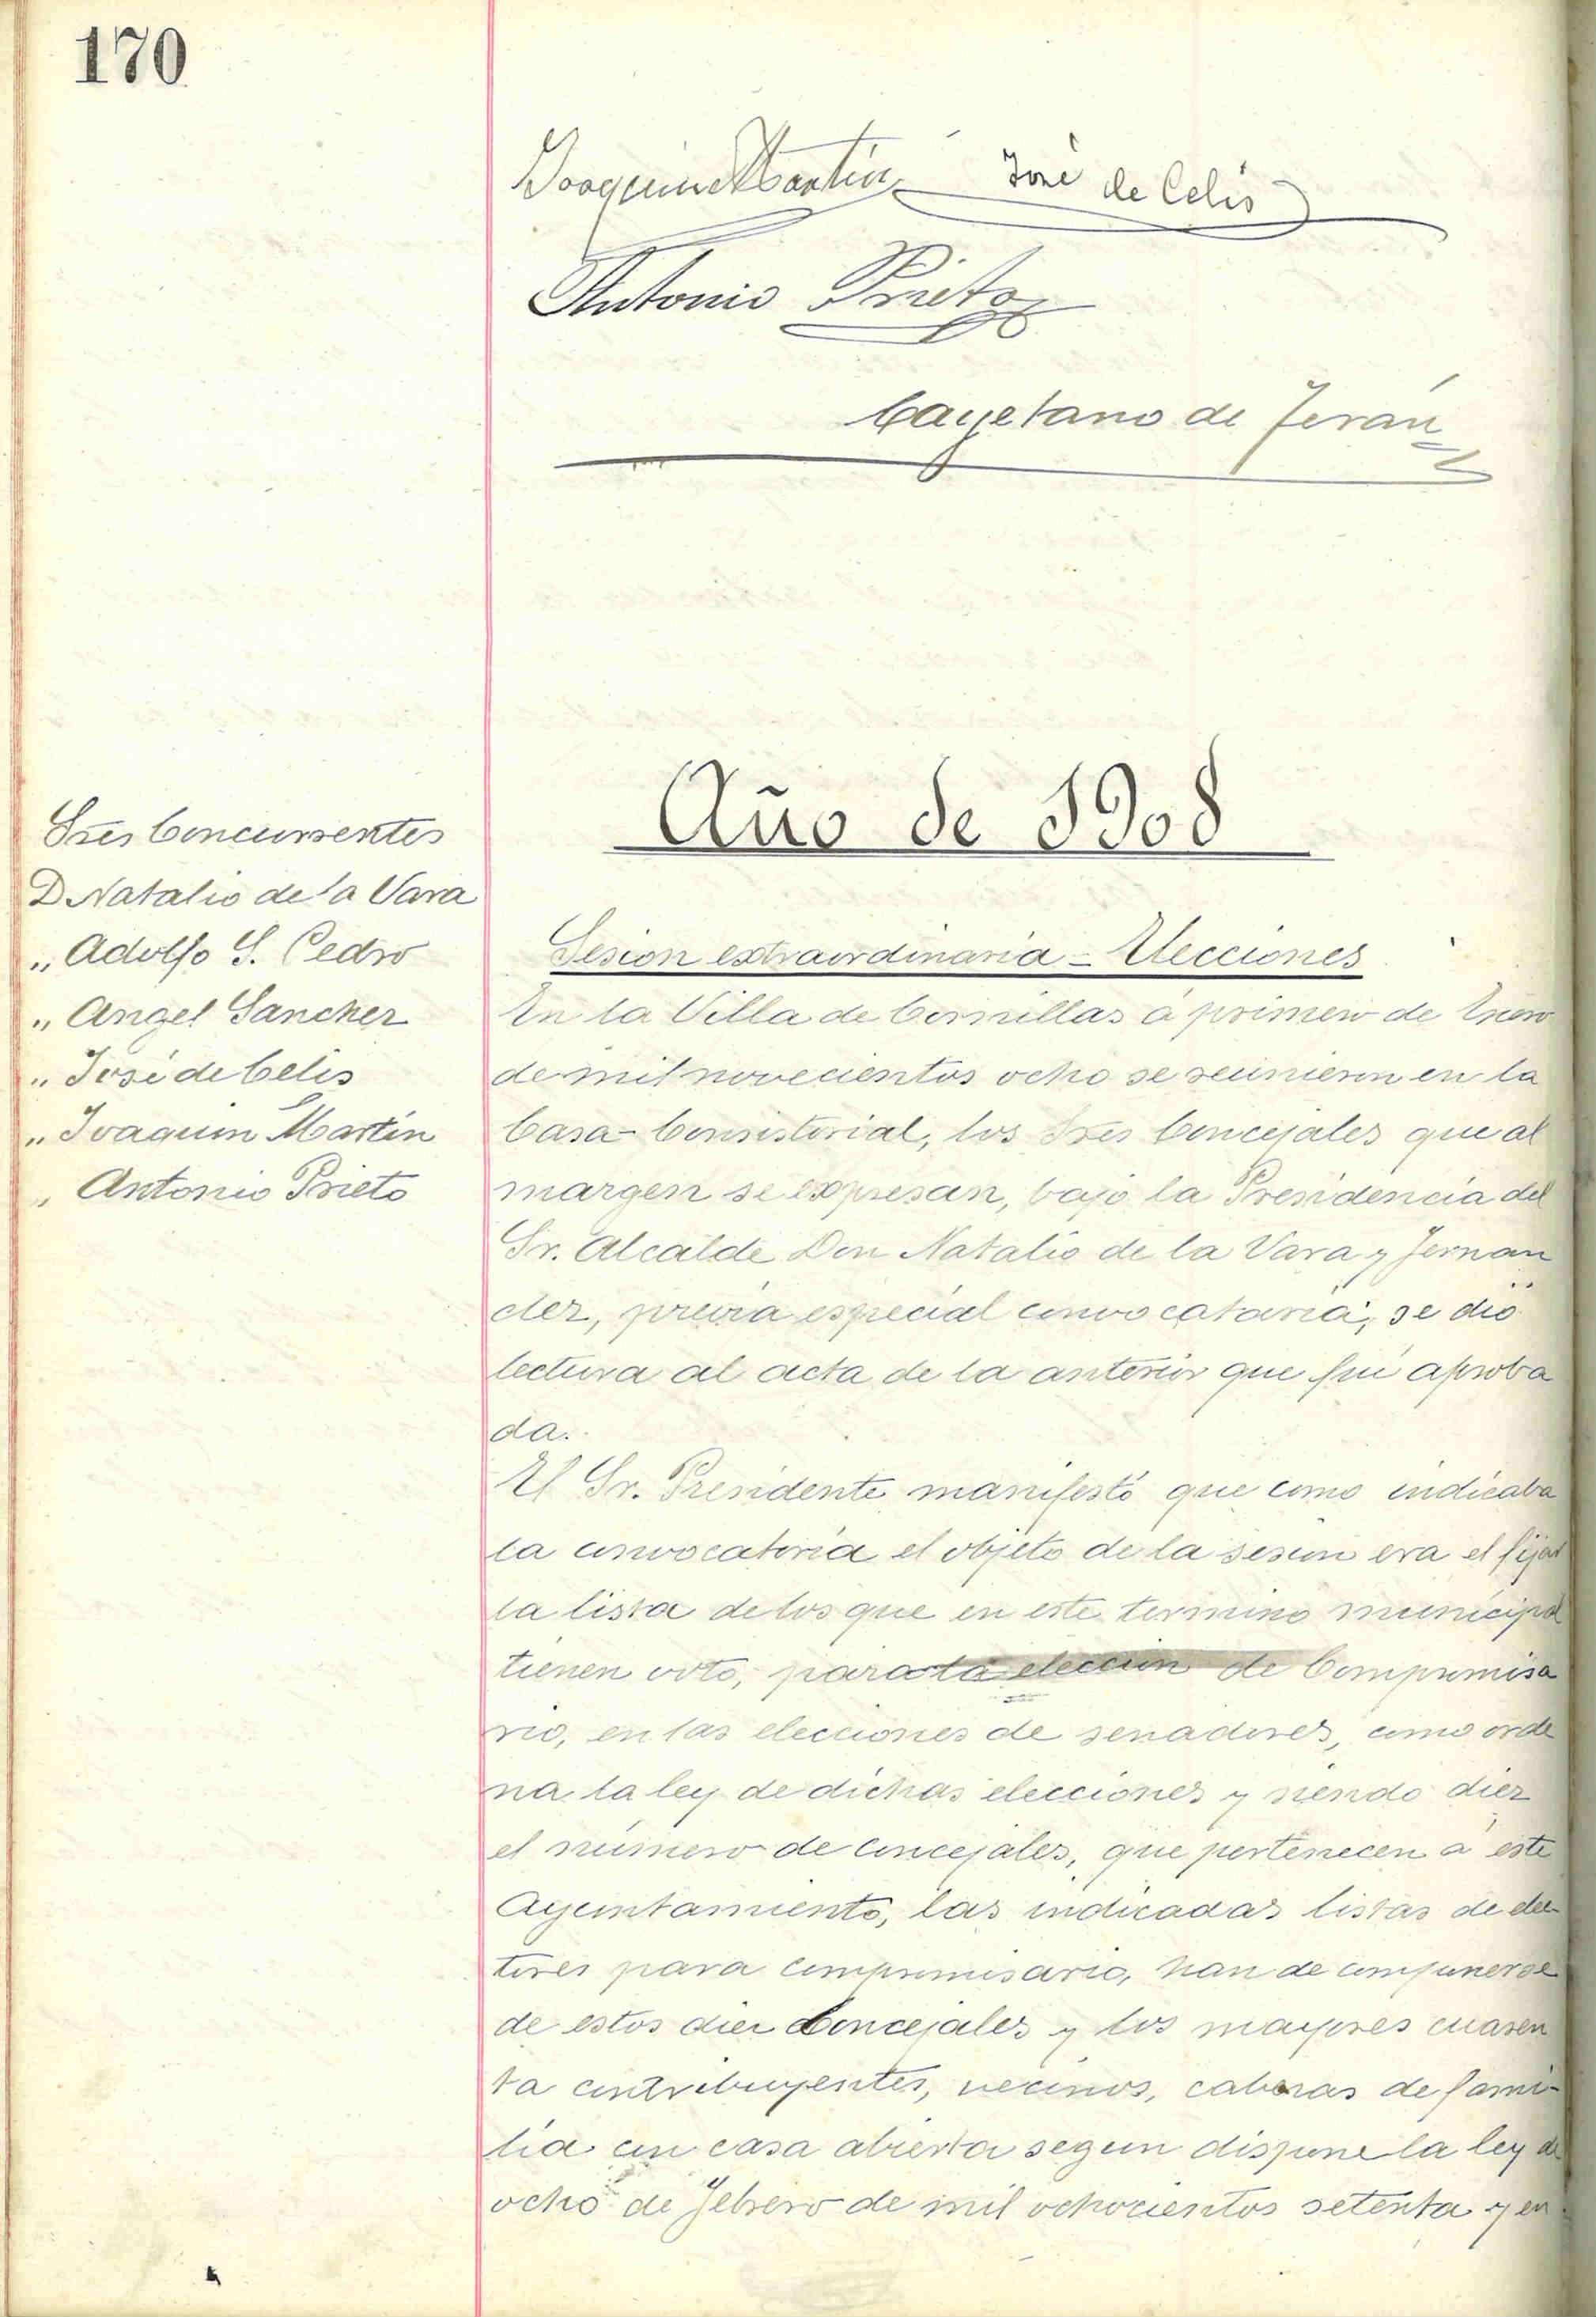 170
Joaquin Martin José de Celis
Antonio Prieto
Cayetano de Terán
Año de 1908
Sres Concurrentes
D Natalio de la Vara
„ Adolfo S. Pedro
„ Angel Sanchez
„ José de Celis
„ Joaquin Martin
„ Antonio Prieto
Sesion extraordinaria - Elecciones
En la Villa de Comillas á primero de Enero
de mil novecientos ocho se reunieron en la
Casa Consistorial, los Sres Concejales que al
margen se expresan, bajo la Presidencia del
Sr. Alcalde Don Natalio de la Vara y Fernan
dez, previa especial convocatoria, se dió
lectura al acta de la anterior que fué aproba
da.
El Sr. Presidente manifestó que como indicaba
la convocatoria el objeto de la sesion era el fijar
la lista de los que en este termino municipal
tienen voto, para la eleccion de Compromisa
rio, en las elecciones de senadores, como orde
na la ley de dichas elecciones y siendo diez
el número de concejales, que pertenecen á este
Ayuntamiento, las indicadas listas de elec
tores para compromisario, han de componerse
de estos diez Concejales y los mayores cuaren
ta contribuyentes, vecinos, cabezas de fami-
lia con casa abierta segun dispone la ley de
ocho de Febrero de mil ochocientos setenta y en